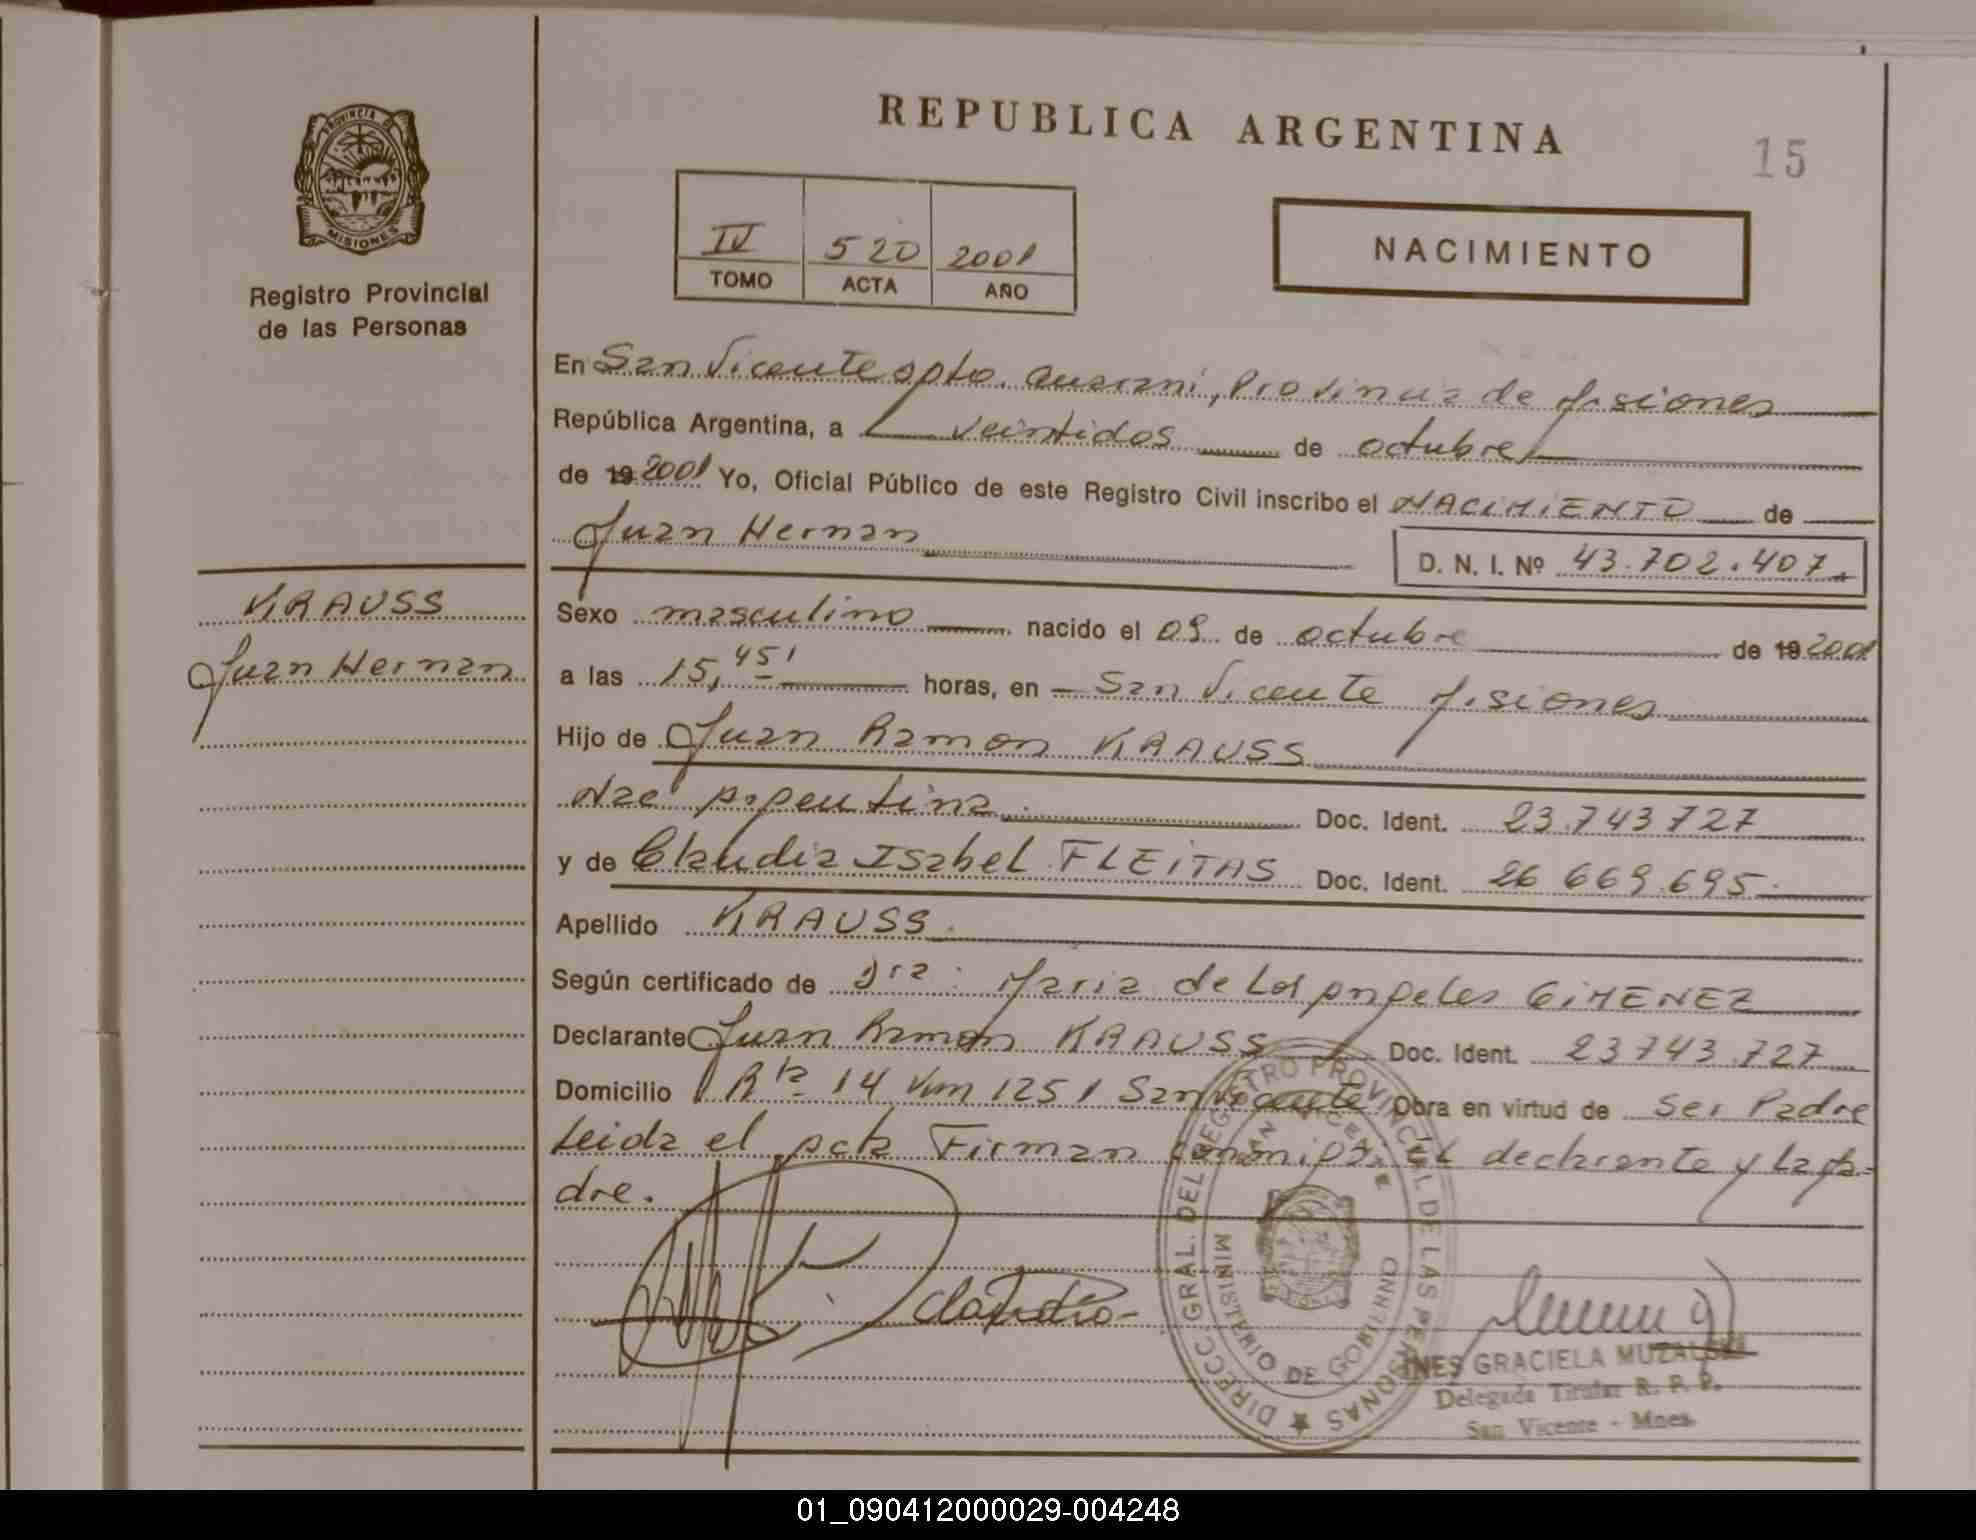 PROVINCIA DE
MISIONES
Registro Provincial
de las Personas
KRAUSS
Juan Hernan
REPUBLICA ARGENTINA
15
IV 520 2001
TOMO ACTA AÑO
NACIMIENTO
En San Vicente Dpto. Guarani, Provincia de Misiones
República Argentina, a veintidos de octubre
de 19 2001 Yo, Oficial Público de este Registro Civil inscribo el NACIMIENTO de
Juan Hernan
D. N. I. Nº 43.702.407
Sexo masculino nacido el 09 de octubre de 19 2001
a las 15,45' horas, en San Vicente Misiones
Hijo de Juan Ramon KRAUSS
Nac argentina Doc. Ident. 23.743.727
y de Claudia Isabel FLEITAS Doc. Ident. 26 669.695.
Apellido KRAUSS
Según certificado de Dra: Maria de Los Angeles GIMENEZ
Declarante Juan Ramon KRAUSS Doc. Ident. 23743.727
Domicilio Rta 14 Km 1251 San Vicente Obra en virtud de ser Padre
Leida el acta Firman conmigo, el declarante y la Ma=
dre.
Claudia
DIRECC. GRAL. DEL REGISTRO PROVINCIAL DE LAS PERSONAS
SAN VICENTE
MINISTERIO DE GOBIERNO
INES GRACIELA
Delegada Titular R. P. P.
San Vicente - Mnes.
01_090412000029-004248